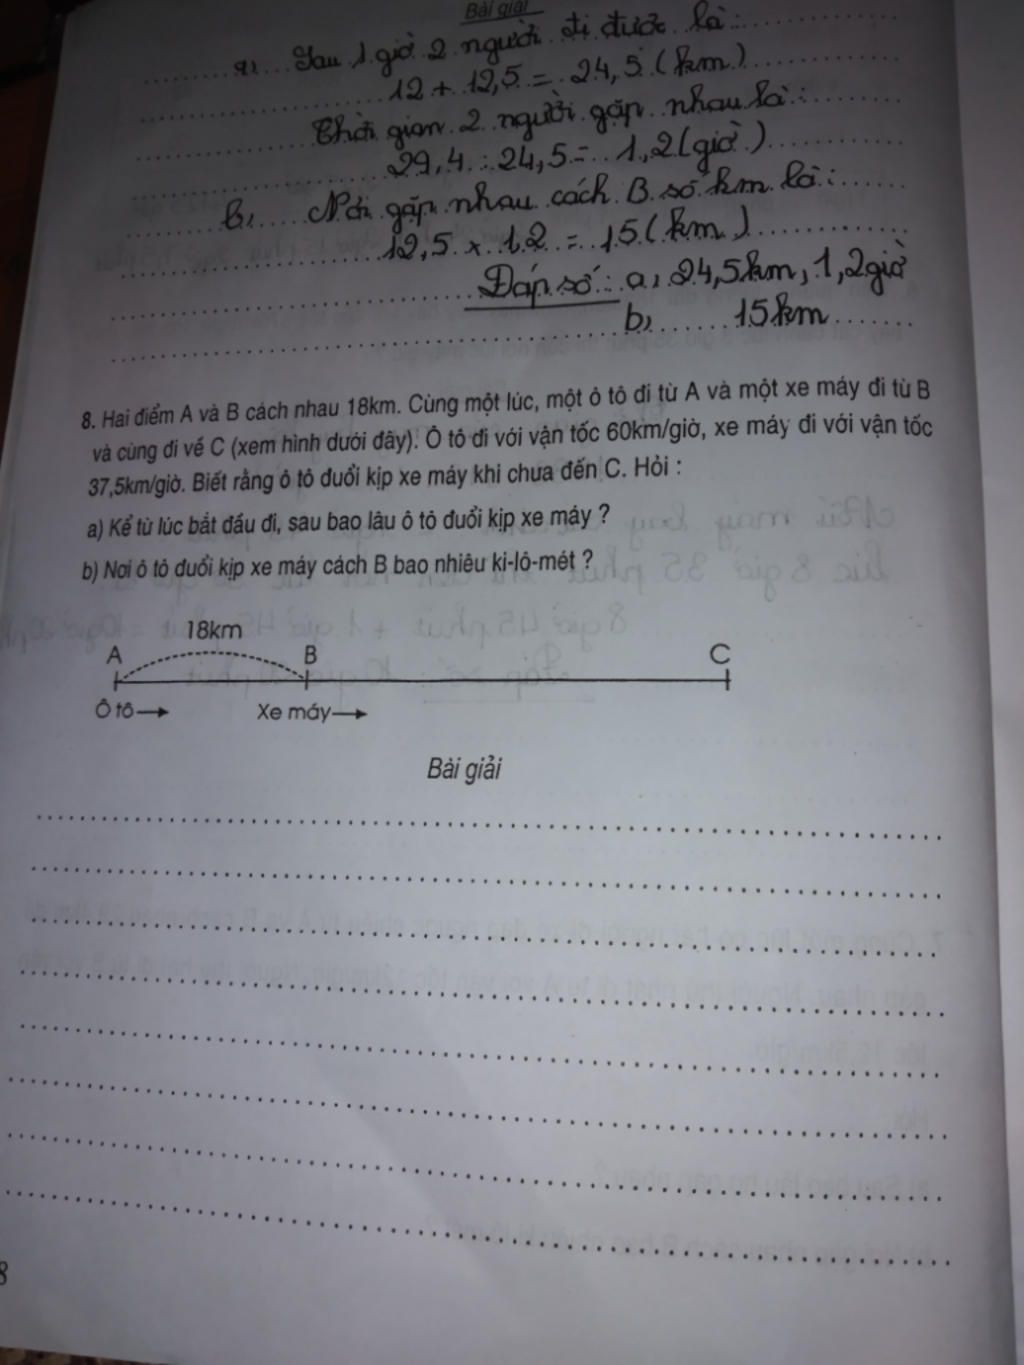 Bài giải
a, Sau 1 giờ 2 người đi được là:
12 + 12,5 = 24,5 (km)
Thời gian 2 người gặp nhau là:
29,4 : 24,5 = 1,2 (giờ)
b, Nơi gặp nhau cách B số km là:
12,5 x 1,2 = 15 (km)
Đáp số: a, 24,5km, 1,2giờ
b, 15km
8. Hai điểm A và B cách nhau 18km. Cùng một lúc, một ô tô đi từ A và một xe máy đi từ B
và cùng đi về C (xem hình dưới đây). Ô tô đi với vận tốc 60km/giờ, xe máy đi với vận tốc
37,5km/giờ. Biết rằng ô tô đuổi kịp xe máy khi chưa đến C. Hỏi :
a) Kể từ lúc bắt đầu đi, sau bao lâu ô tô đuổi kịp xe máy ?
b) Nơi ô tô đuổi kịp xe máy cách B bao nhiêu ki-lô-mét ?
18km
A B C
Ô tô Xe máy
Bài giải
8